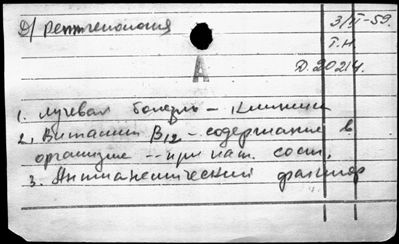 Д/ рентгенология
3/II-59.
Т.Н.
А
Д. 20214.
1. Лучевая болезнь - клиника
2. Витамин В12 - содержание в
организме -- при пат. сост.
3. Антианемический фактор